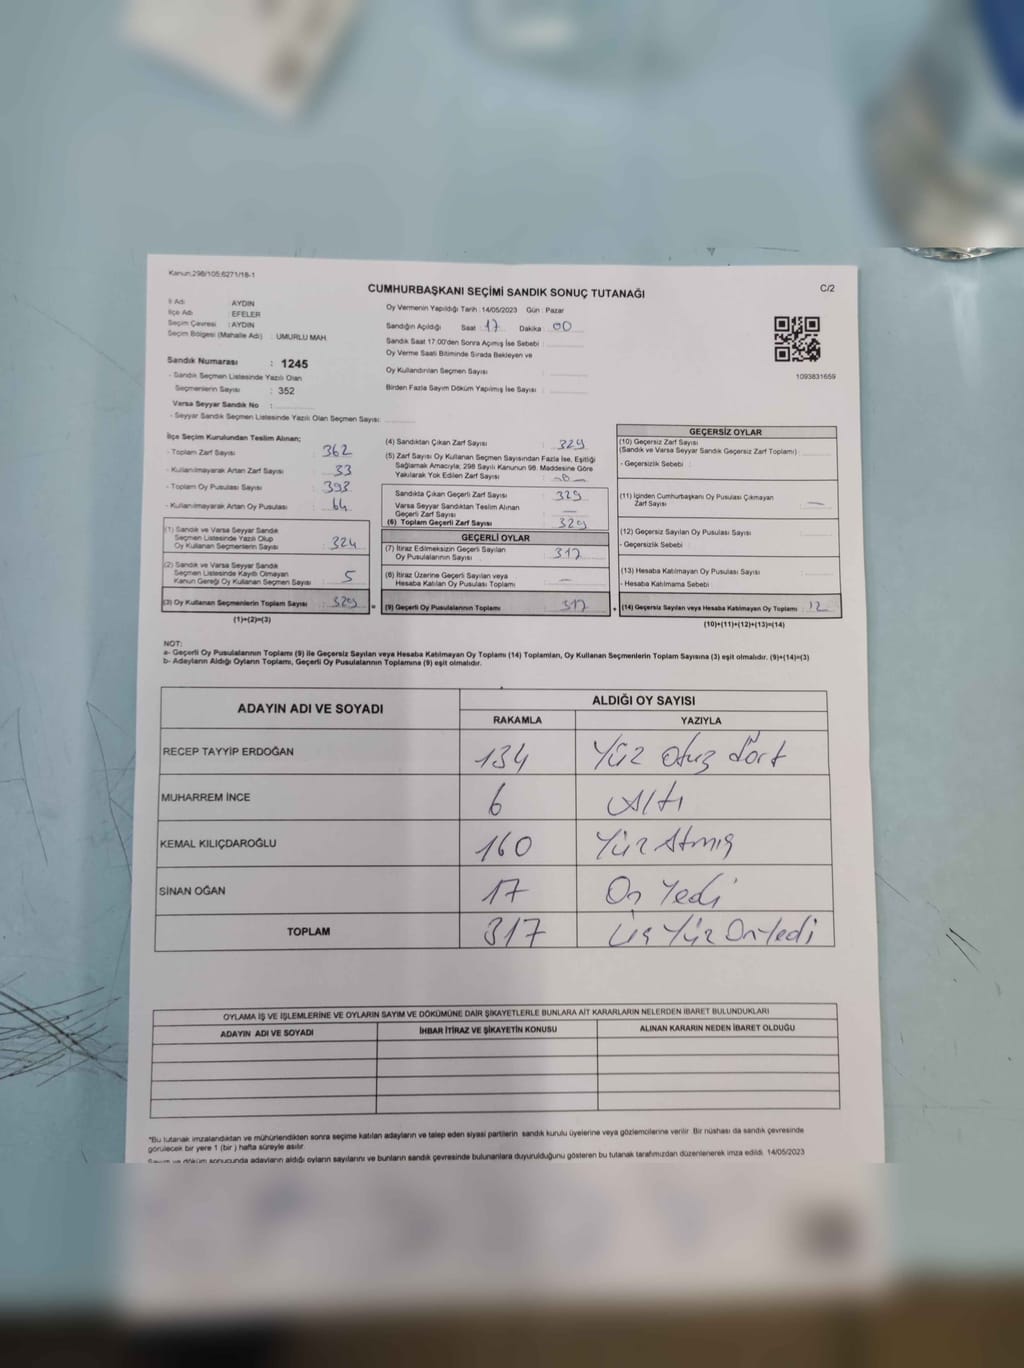 Kanun;298/105;6271/18-1
CUMHURBAŞKANI SEÇİMİ SANDIK SONUÇ TUTANAĞI
C/2
İl Adı : AYDIN
İlçe Adı : EFELER
Seçim Çevresi : AYDIN
Seçim Bölgesi (Mahalle Adı) : UMURLU MAH.
Sandık Numarası : 1245
- Sandık Seçmen Listesinde Yazılı Olan
Seçmenlerin Sayısı : 352
Varsa Seyyar Sandık No :
- Seyyar Sandık Seçmen Listesinde Yazılı Olan Seçmen Sayısı:
Oy Vermenin Yapıldığı Tarih : 14/05/2023 Gün : Pazar
Sandığın Açıldığı Saat 17 Dakika : 00
Sandık Saat 17.00'den Sonra Açılmış İse Sebebi :
Oy Verme Saati Bitiminde Sırada Bekleyen ve
Oy Kullandırılan Seçmen Sayısı :
Birden Fazla Sayım Döküm Yapılmış İse Sayısı :
1093831659
İlçe Seçim Kurulundan Teslim Alınan;
- Toplam Zarf Sayısı : 362
- Kullanılmayarak Artan Zarf Sayısı : 33
- Toplam Oy Pusulası Sayısı : 393
- Kullanılmayarak Artan Oy Pusulası : 64
(1) Sandık ve Varsa Seyyar Sandık
Seçmen Listesinde Yazılı Olup
Oy Kullanan Seçmenlerin Sayısı : 324
(2) Sandık ve Varsa Seyyar Sandık
Seçmen Listesinde Kayıtlı Olmayan
Kanun Gereği Oy Kullanan Seçmen Sayısı : 5
(3) Oy Kullanan Seçmenlerin Toplam Sayısı : 329
(1)+(2)=(3)
(4) Sandıktan Çıkan Zarf Sayısı : 329
(5) Zarf Sayısı Oy Kullanan Seçmen Sayısından Fazla İse, Eşitliği
Sağlamak Amacıyla; 298 Sayılı Kanunun 98. Maddesine Göre
Yakılarak Yok Edilen Zarf Sayısı :
Sandıkta Çıkan Geçerli Zarf Sayısı : 329
Varsa Seyyar Sandıktan Teslim Alınan
Geçerli Zarf Sayısı : —
(6) Toplam Geçerli Zarf Sayısı : 329
GEÇERLİ OYLAR
(7) İtiraz Edilmeksizin Geçerli Sayılan
Oy Pusulalarının Sayısı : 317
(8) İtiraz Üzerine Geçerli Sayılan veya
Hesaba Katılan Oy Pusulası Sayısı : —
= (9) Geçerli Oy Pusulalarının Toplamı : 317
GEÇERSİZ OYLAR
(10) Geçersiz Zarf Sayısı
(Sandık ve Varsa Seyyar Sandık Geçersiz Zarf Toplamı) :
- Geçersizlik Sebebi :
(11) İçinden Cumhurbaşkanı Oy Pusulası Çıkmayan
Zarf Sayısı : —
(12) Geçersiz Sayılan Oy Pusulası Sayısı :
- Geçersizlik Sebebi :
(13) Hesaba Katılmayan Oy Pusulası Sayısı :
- Hesaba Katılmama Sebebi :
+ (14) Geçersiz Sayılan veya Hesaba Katılmayan Oy Toplamı : 12
(10)+(11)+(12)+(13)=(14)
NOT:
a- Geçerli Oy Pusulalarının Toplamı (9) ile Geçersiz Sayılan veya Hesaba Katılmayan Oy Toplamı (14) Toplamları, Oy Kullanan Seçmenlerin Toplam Sayısına (3) eşit olmalıdır. (9)+(14)=(3)
b- Adayların Aldığı Oyların Toplamı, Geçerli Oy Pusulalarının Toplamına (9) eşit olmalıdır.
ADAYIN ADI VE SOYADI
ALDIĞI OY SAYISI
RAKAMLA YAZIYLA
RECEP TAYYİP ERDOĞAN 134 Yüz otuz dört
MUHARREM İNCE 6 Altı
KEMAL KILIÇDAROĞLU 160 Yüz Atmış
SİNAN OĞAN 17 On Yedi
TOPLAM 317 Üç Yüz On Yedi
OYLAMA İŞ VE İŞLEMLERİNE VE OYLARIN SAYIM VE DÖKÜMÜNE DAİR ŞİKAYETLERLE BUNLARA AİT KARARLARIN NELERDEN İBARET BULUNDUKLARI
ADAYIN ADI VE SOYADI İHBAR İTİRAZ VE ŞİKAYETİN KONUSU ALINAN KARARIN NEDEN İBARET OLDUĞU
*Bu tutanak imzalandıktan ve mühürlendikten sonra seçime katılan adayların ve talep eden siyasi partilerin sandık kurulu üyelerine veya gözlemcilerine verilir. Bir nüshası da sandık çevresinde
görülecek bir yere 1 (bir ) hafta süreyle asılır.
Sayım ve döküm sonucunda adayların aldığı oyların sayılarını ve bunların sandık çevresinde bulunanlara duyurulduğunu gösteren bu tutanak tarafımızdan düzenlenerek imza edildi. 14/05/2023